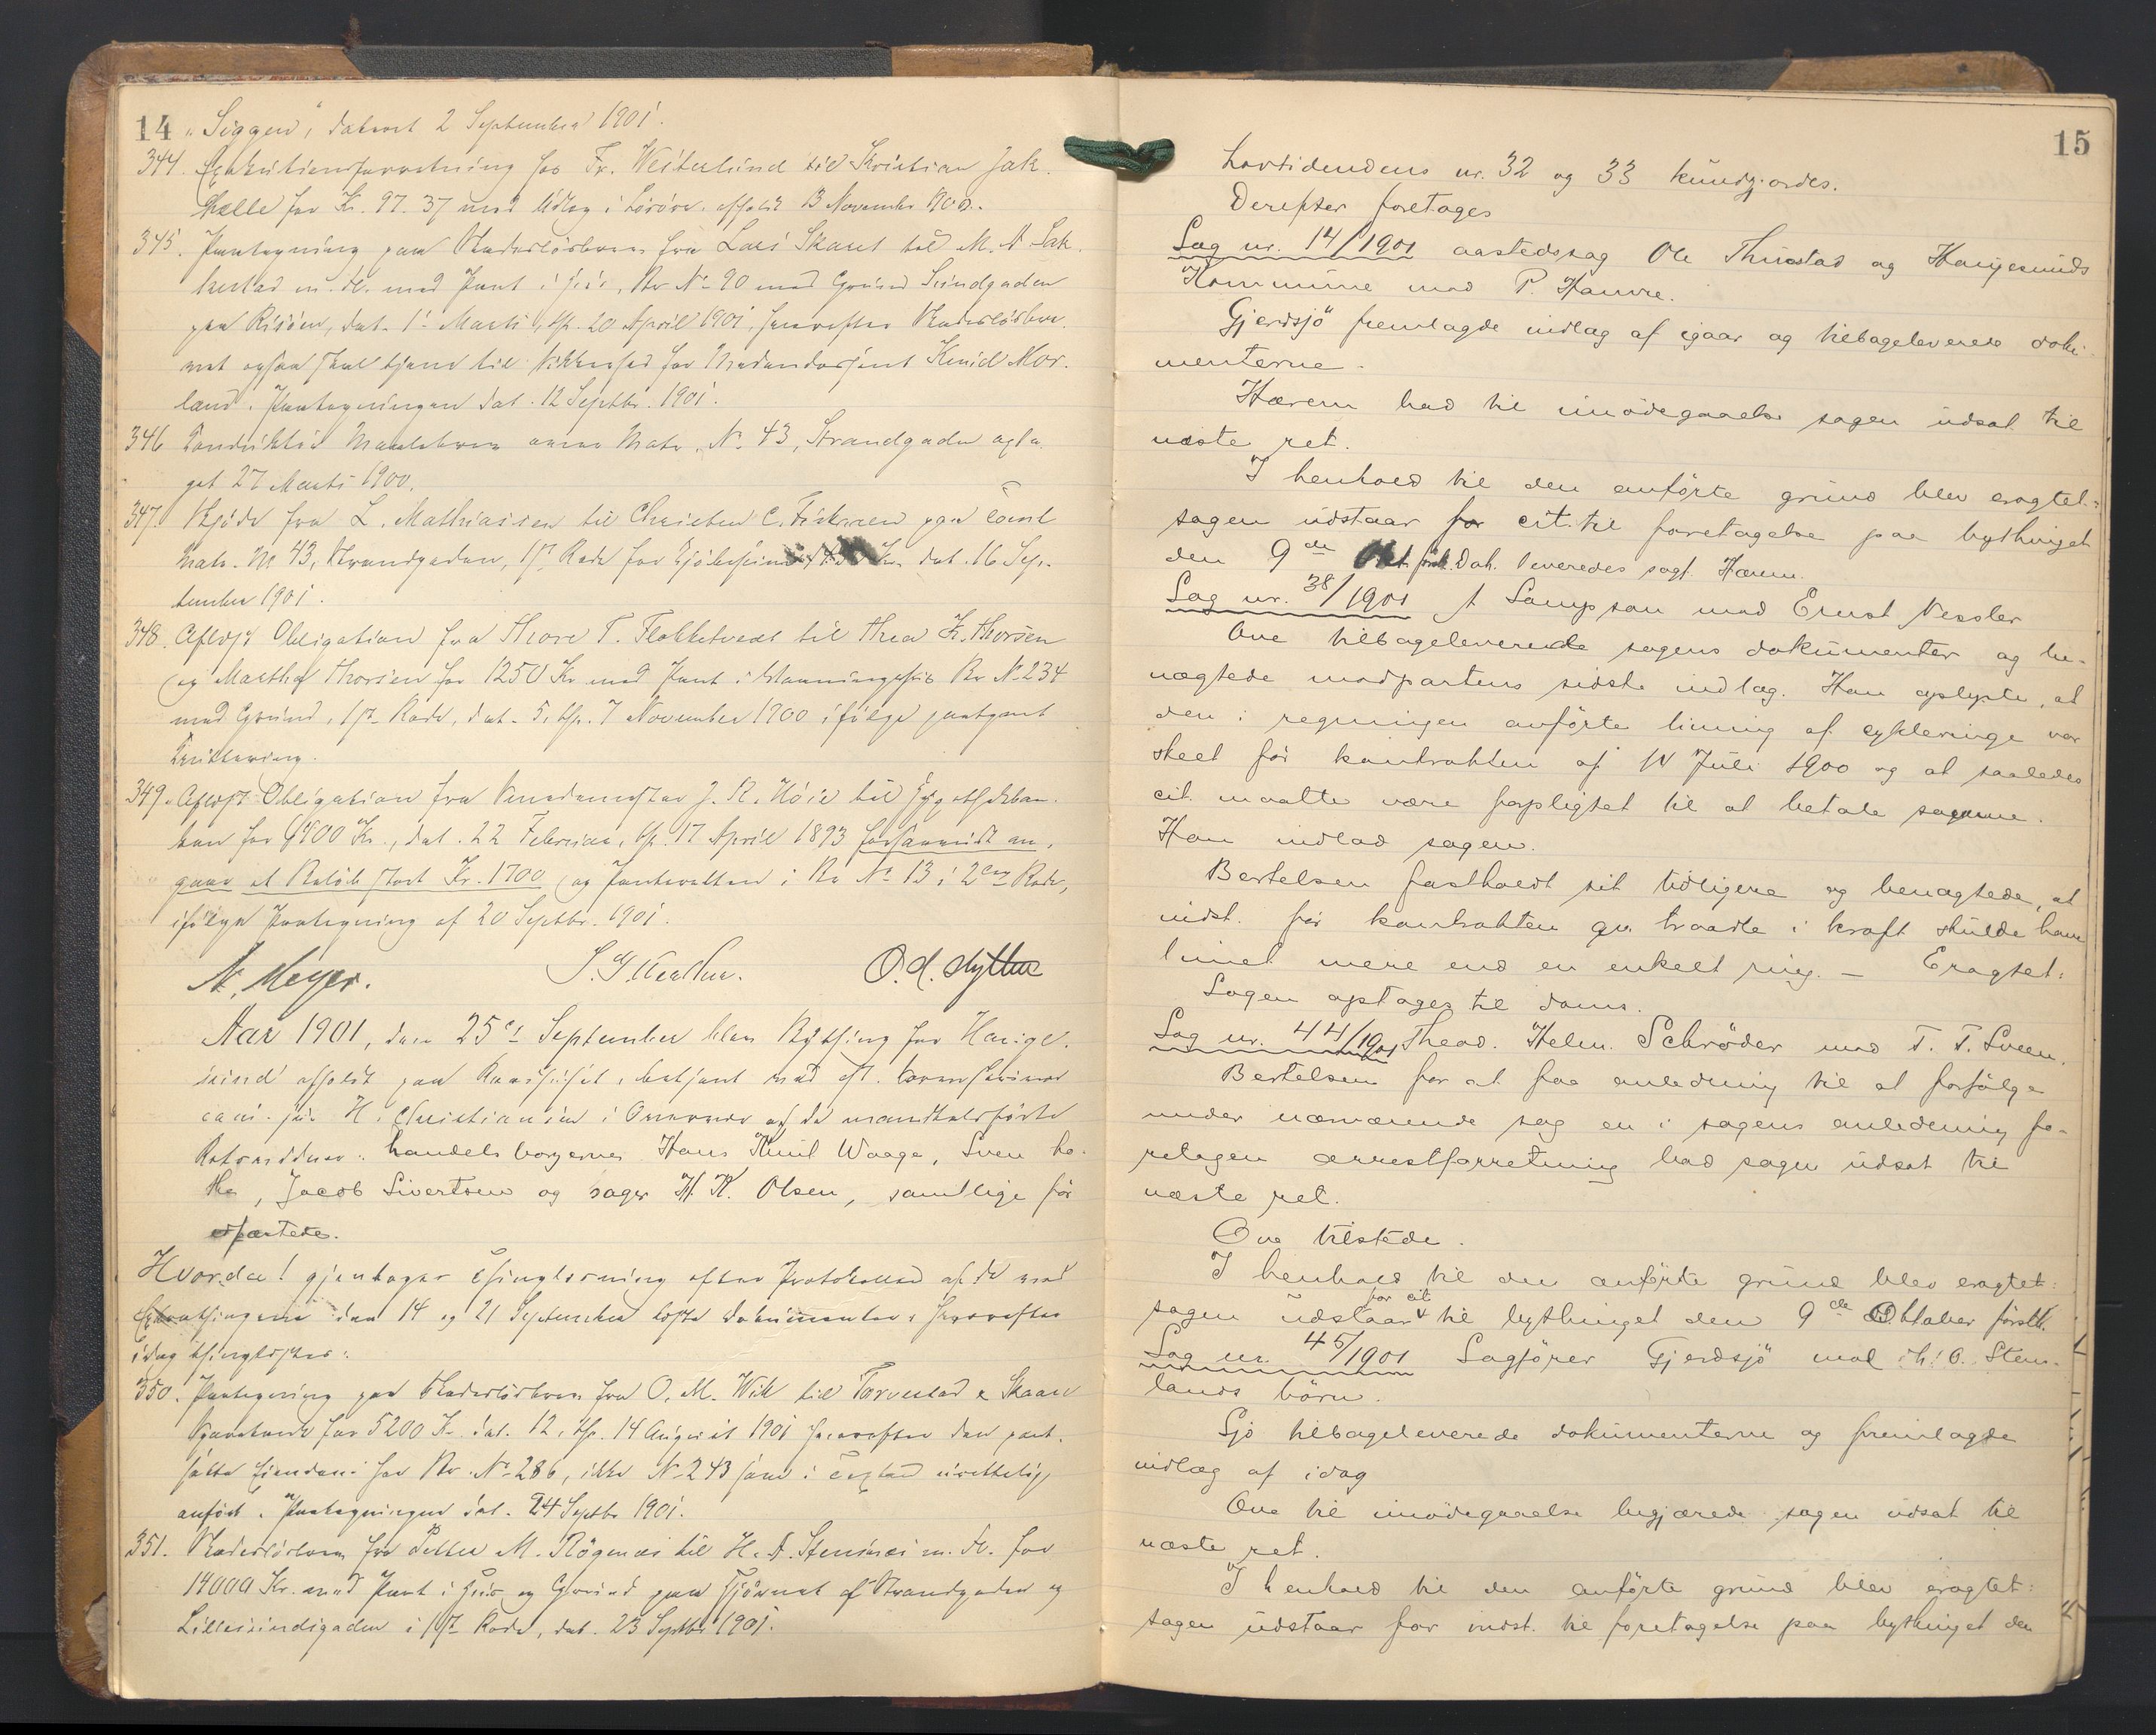 14 „Siggen", dateret 2 September 1901.
344. Exekutionsforretning for Fr. Westerlund til Kristian Jak.
Helle for Kr. 97.37 med Udlæg i Løsøre, afholdt 13 November 1900.
345. Paategning paa Skadesløsbrev fra Lars Skaret til M. A. Sak-
kestad m. fl. med Pant i Hus, Br N° 90 med Grund Sundgaden
paa Risöen, dat. 1 Marts, thl. 20 April 1901, hvorefter Skadesløsbre-
vet ogsaa skal tjene til Sikkerhed for Medunderskrevet Knud Mor-
land. Paategningen dat. 12 Septbr. 1901.
346 Maalebrev over Matr. N° 43, Strandgaden opta-
get 27 Marts 1900.
347. Skjöde fra L. Mathiassen til Christen C. paa Tomt
Matr. N° 43, Strandgaden, 1ste Rode for Kjöbesum Kr. dat. 16 Sep-
tember 1901.
348. Aflyst Obligation fra Thore T. Flokketvedt til Thea K. Thorsen
og Martha Thorsen for 1250 Kr med Pant i Vaaningshus Br N° 234
med Grund, 1ste Rode, dat. 5, thl. 7 November 1900 ifölge paategnet
Kvittering.
349. Aflyst Obligation fra J. R. Höie til Hypothekban-
ken for Kr., dat. 22 Februar, thl. 17 April 1893 forsaavidt an-
gaar et Belöb stort Kr. 1700 og Panteretten i Br N° 13 i 2den Rode,
ifölge Paategning af 20 Septbr. 1901.
A. Meyer. O. A. Mythne
Aar 1901, den 25de September blev Bything for Hauge-
sund afholdt paa Raadhuset, betjent ved cst. Sorenskriver
cand. jur. H. Christiansen i Overvær af de mandtalsförte
Retsvidner: handelsborgerne Hans Knut Waage, Sven Ho-
the, Jacob Sivertsen og sager H. K. Olsen, samtlige för
edfæstede.
Hvorda! gjentoges Thinglæsning efter Protokollen af de ved
Extrathingene den 14 og 21 September læste Dokumenter, hvorefter
idag thinglystes:
350. Paategning paa Skadesløsbrev fra O. M. Wik til Torvestad & Skaare
Sparebank for 5200 Kr. dat. 12, thl. 14 August 1901 hvorefter den pant-
satte Eiendom har Br. N° 286, ikke N° 243 som i Texten urettelig
anfört. Paategningen dat. 24 Septbr 1901.
351. Skadesløsbrev fra Peder M. Rögenæs til H. A. Stensnæs m. fl. for
14000 Kr. med Pant i Hus og Grund paa Hjörnet af Strandgaden og
Lillesundsgaden i 1ste Rode, dat. 23 Septbr 1901.
15
Lovtidendens nr. 32 og 33 kundgjordes.
Derefter foretages
Sag nr. 14/1901 aastedssag Ole Thuestad og Haugesunds
Kommune mod P. Hauvre.
Gjerdsjö fremlagde indlæg af igaar og tilbageleverede doku-
menterne.
Hærem bad til imödegaaelse sagen udsat til
næste ret.
I henhold til den anförte grund blev eragtet:
sagen udstaar for cit. til foretagelse paa bythinget
den 9de Okt. förstk. Dok. leveredes sagf. Hærem.
Sag nr. 38/1901 A Sampson mod Ernst Nessler
Ove tilbageleverede sagens dokumenter og be-
nægtede modpartens sidste indlæg. Han oplyste, at
den i regningen anförte liming af cykleringe var
skeet för kontrakten af 14 Juli 1900 og at saaledes
cit. maatte være forpligtet til at betale samme.
Han indlod sagen.
Bertelsen fastholdt sit tidligere og benægtede, at
indst. för kontrakten qv. traadte i kraft skulde have
limet mere end en enkelt ring. – Eragtet:
Sagen optages til doms.
Sag nr. 44/1901 Theod. Helm. Schröder mod T. T. Sveen.
Bertelsen for at faa anledning til at forfölge
under nærværende sag en i sagens anledning fo-
retagen arrestforretning bad sagen udsat til
næste ret.
Ove tilstede.
I henhold til den anförte grund blev eragtet:
sagen udstaar for cit til bythinget den 9de Oktober förstk.
Sag nr. 45/1901 Sagförer Gjerdsjö mod O. Stens-
lands börn.
Sjö tilbageleverede dokumenterne og fremlagde
indlæg af idag
Ove til imödegaaelse begjærede sagen udsat til
næste ret.
I henhold til den anförte grund blev eragtet:
sagen udstaar for indst. til foretagelse paa bythinget den